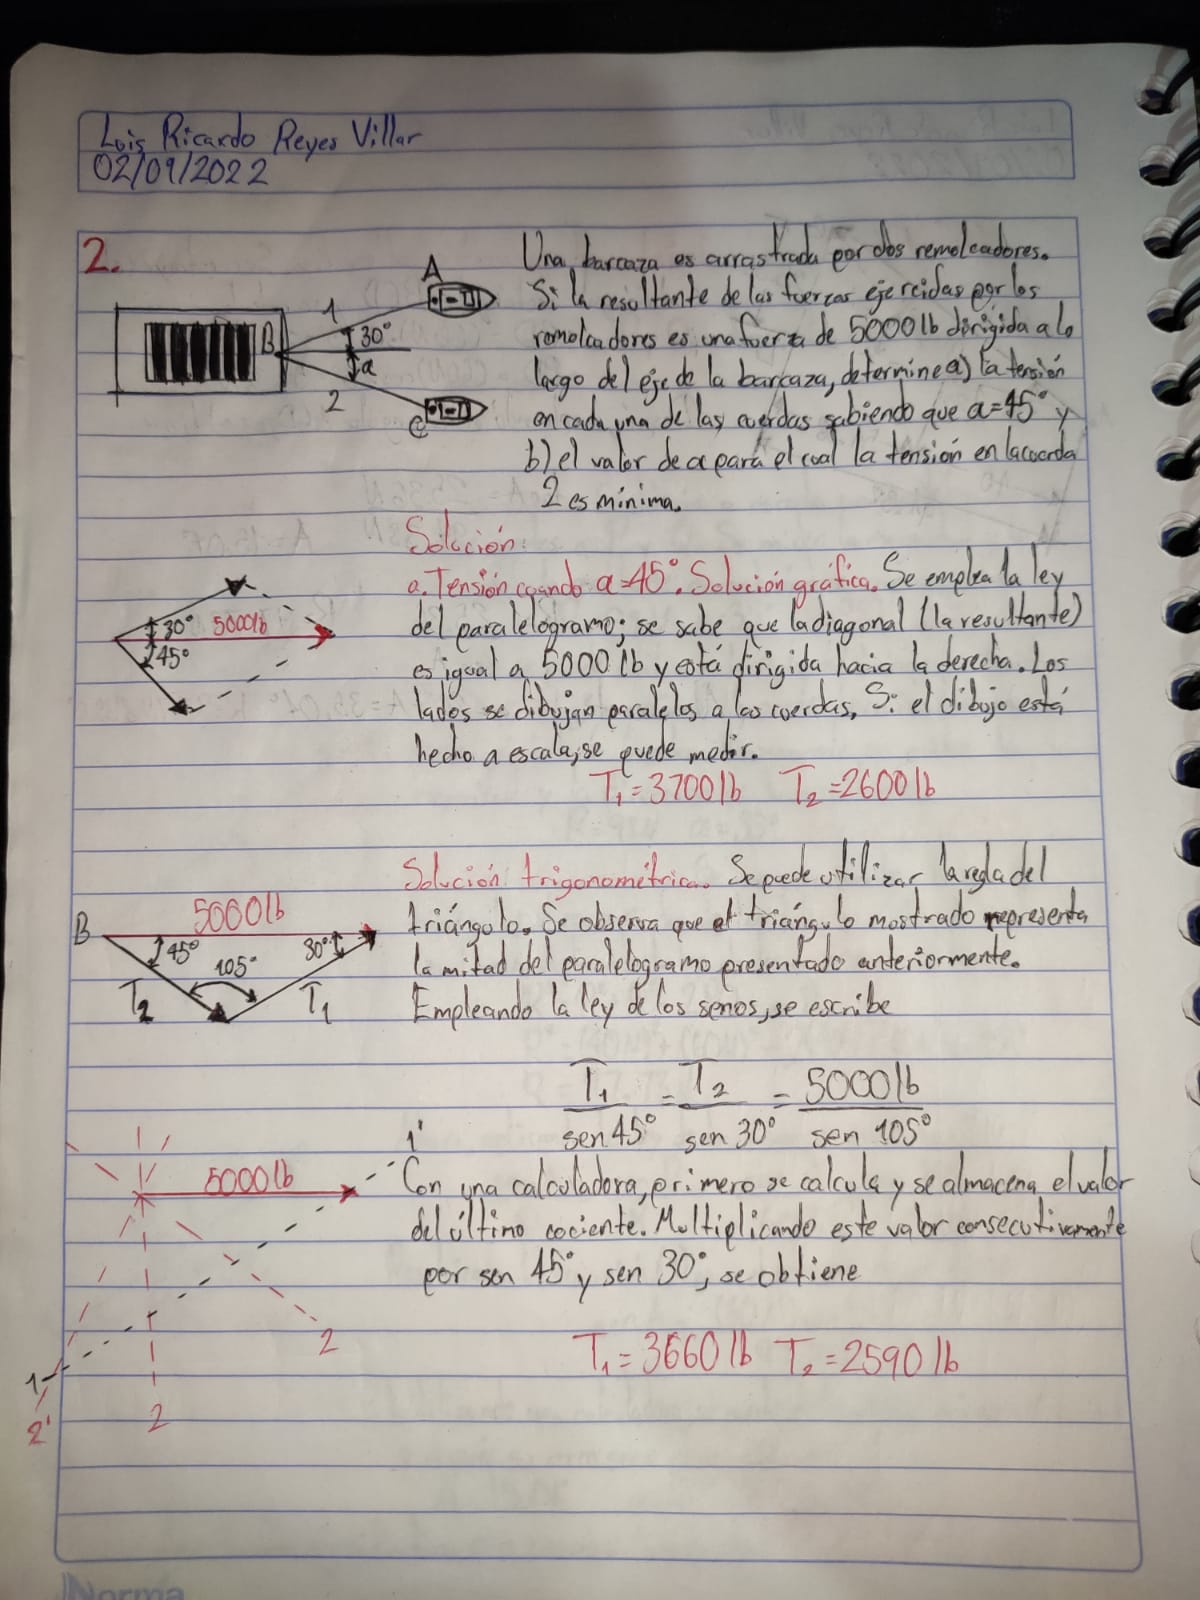 Luis Ricardo Reyes Villar
02/09/2022
2.
Una barcaza es arrastrada por dos remolcadores.
Si la resultante de las fuerzas ejercidas por los
remolcadores es una fuerza de 5000 lb dirigida a lo
largo del eje de la barcaza, determine a) la tensión
en cada una de las cuerdas sabiendo que α=45° y
b) el valor de α para el cual la tensión en la cuerda
2 es mínima.
A
1
B
30°
α
2
C
Solución:
a. Tensión cuando α=45°. Solución gráfica. Se emplea la ley
del paralelogramo; se sabe que la diagonal (la resultante)
es igual a 5000 lb y está dirigida hacia la derecha. Los
lados se dibujan paralelos a las cuerdas. Si el dibujo está
hecho a escala, se puede medir.
30°
5000lb
45°
T₁=3700 lb T₂=2600 lb
Solución trigonométrica. Se puede utilizar la regla del
triángulo. Se observa que el triángulo mostrado representa
la mitad del paralelogramo presentado anteriormente.
Empleando la ley de los senos, se escribe
5000 lb
B
45°
30°
105°
T₂
T₁
T₁ = T₂ = 5000 lb
sen 45° sen 30° sen 105°
Con una calculadora, primero se calcula y se almacena el valor
del último cociente. Multiplicando este valor consecutivamente
por sen 45° y sen 30°, se obtiene
T₁=3660 lb T₂=2590 lb
1'
5000lb
2
1
2'
2
Norma